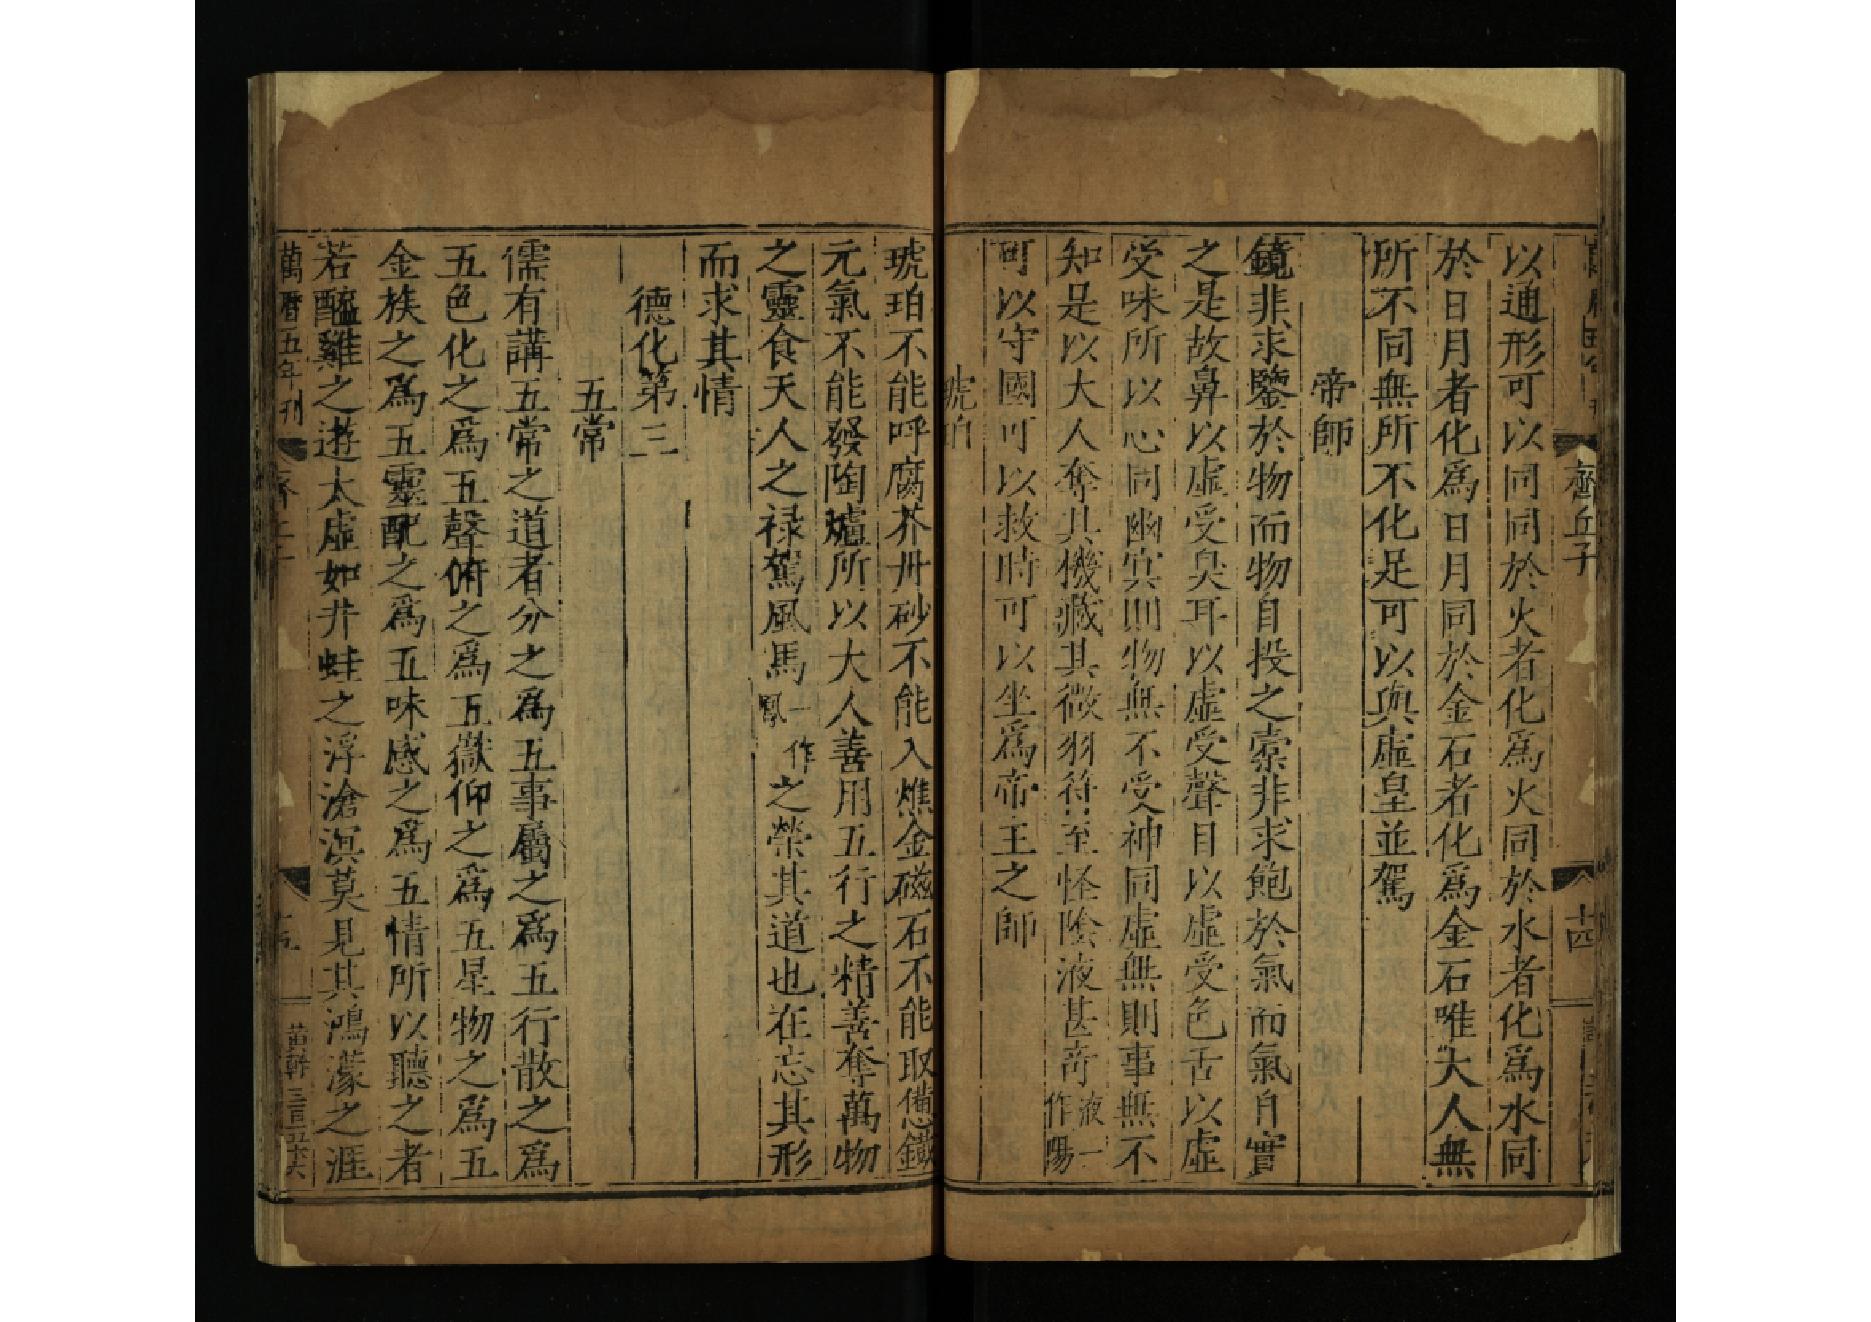 齊丘子
十四
以通形可以同同於火者化爲火同於水者化爲水同
於日月者化爲日月同於金石者化爲金石唯大人無
所不同無所不化足可以與虛皇並駕
帝師
鏡非求鑒於物而物自投之橐非求飽於氣而氣自實
之是故鼻以虛受臭耳以虛受聲目以虛受色舌以虛
受味所以心同幽冥則物無不受神同虛無則事無不
知是以大人奪其機藏其微羽符至怪陰液甚奇液一作陽
可以守國可以救時可以坐爲帝王之師
琥珀
琥珀不能呼腐芥丹砂不能入燋金磁石不能取憊鐵
元氣不能發陶爐所以大人善用五行之精善奪萬物
之靈食天人之禄駕風馬一作鳳之榮其道也在忘其形
而求其情
德化第三
五常
儒有講五常之道者分之爲五事屬之爲五行散之爲
五色化之爲五聲俯之爲五嶽仰之爲五星物之爲五
金族之爲五靈配之爲五味感之爲五情所以聽之者
若醯雞之遊太虛如井蛙之浮滄溟莫見其鴻濛之涯
萬曆五年刊
十五
黄幹三百五十六